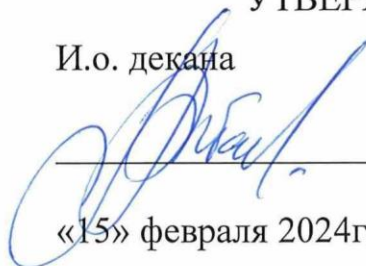 И.о. декана
«15» февраля 2024г